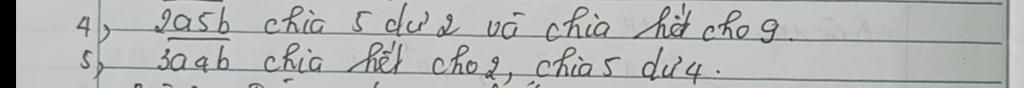 4) 2a5b chia 5 dư 2 và chia hết cho 9.
5) 3aab chia hết cho 2, chia 5 dư 4.